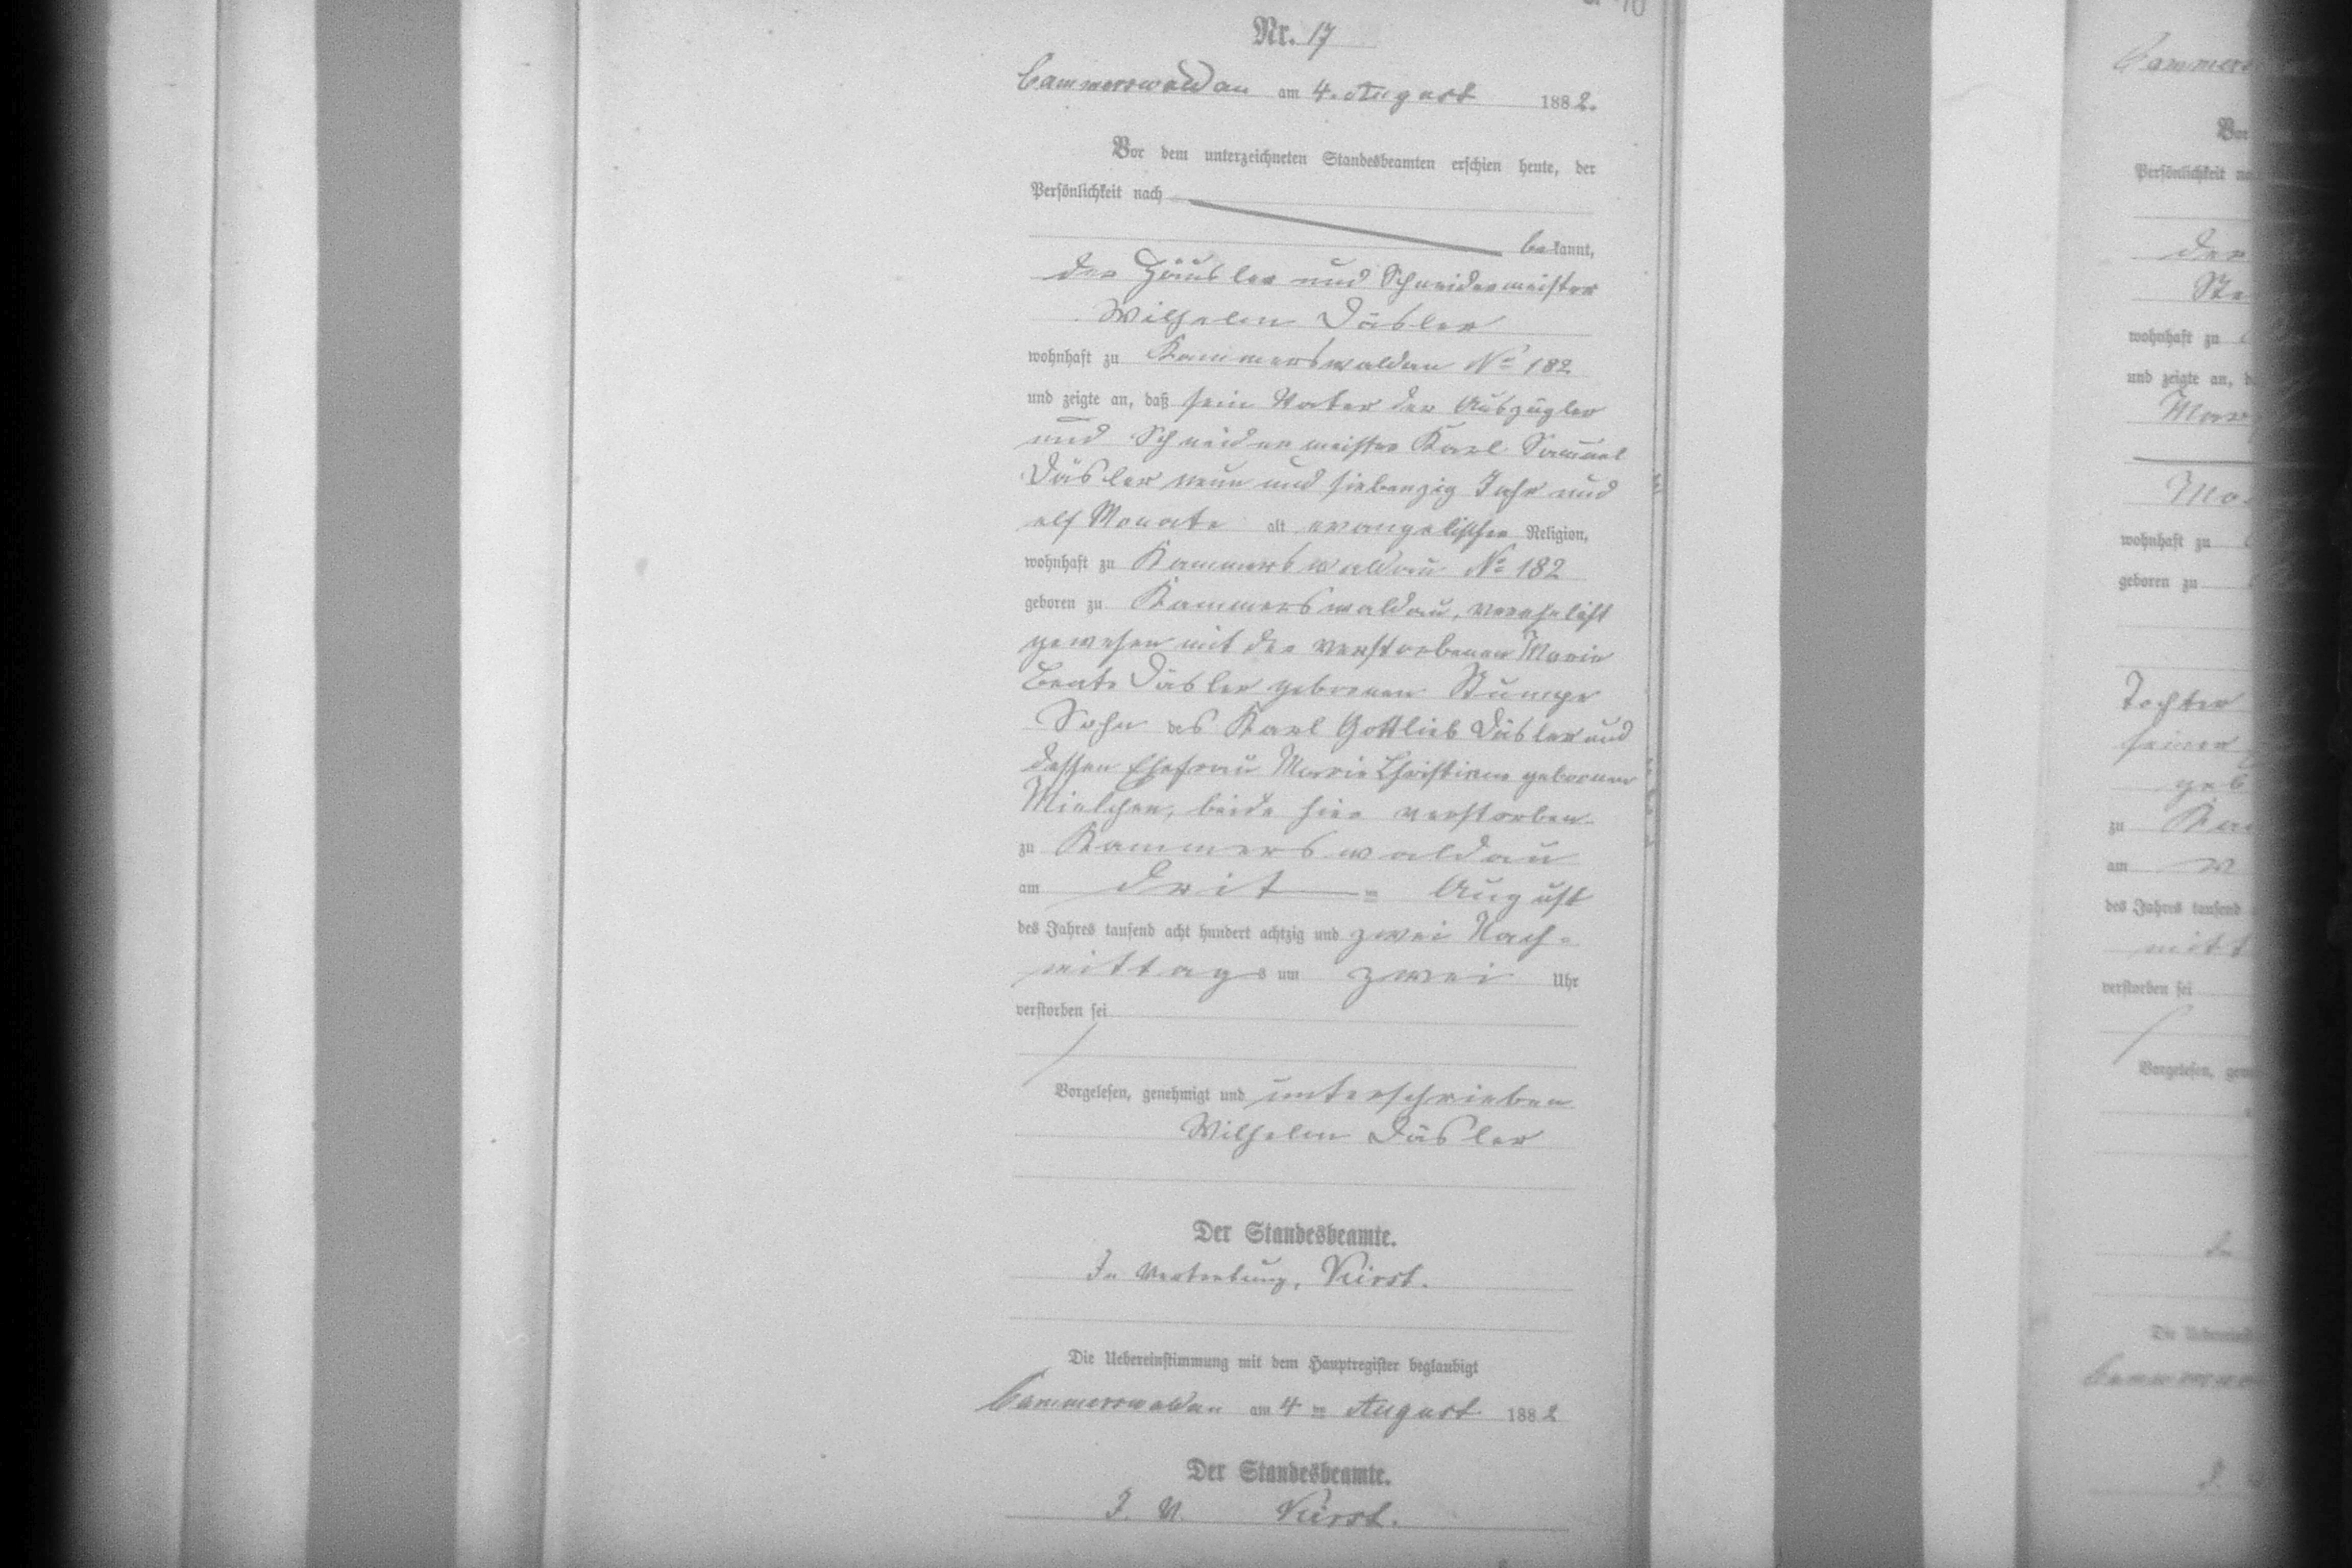 Nr. 17
Cammerswaldau am 4. August 1882.
Vor dem unterzeichneten Standesbeamten erschien heute, der
Persönlichkeit nach
bekannt,
der Häusler und Schneidermeister
Wilhelm Däsler
wohnhaft zu Kammerswaldau No 182
und zeigte an, daß sein Vater der Auszügler
und Schneidermeister Karl Samuel
Däsler neun und siebenzig Jahr und
elf Monate alt evangelischer Religion,
wohnhaft zu Kammerswaldau No 182
geboren zu Kammerswaldau, verehelicht
gewesen mit der verstorbenen Marie
Beate Däsler geborenen Stumpe
Sohn des Karl Gottlieb Däsler und
dessen Ehefrau Marie Christiane geborenen
Mielchen, beide hier verstorben
zu Kammerswaldau
am drit = August
des Jahres tausend acht hundert achtzig und zwei Nach=
mittags um zwei Uhr
verstorben sei
Vorgelesen, genehmigt und unterschrieben
Wilhelm Däsler
Der Standesbeamte.
In Vertretung,
Die Uebereinstimmung mit dem Hauptregister beglaubigt
Cammerswaldau am 4 ten August 1882
Der Standesbeamte.
J. V.
Cammers
Vor
Persönlichkeit
der
Ste
wohnhaft zu
und zeigte an,
wohnhaft zu
geboren zu
Tochter
seiner
geb
zu
am
des Jahres tausend
mitt
verstorben sei
Vorgelesen,
Die